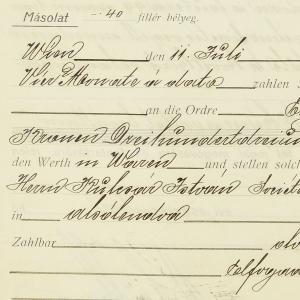 Másolat 40 fillér bélyeg.
Wien den 11. Juli
Vier Monate à dato zahlen
an die Ordre
Kronen Dreihundertdreiun
den Werth in Waren und stellen solch
Herrn Kulcsár István Société
in alsólendva
Zahlbar
elfogad